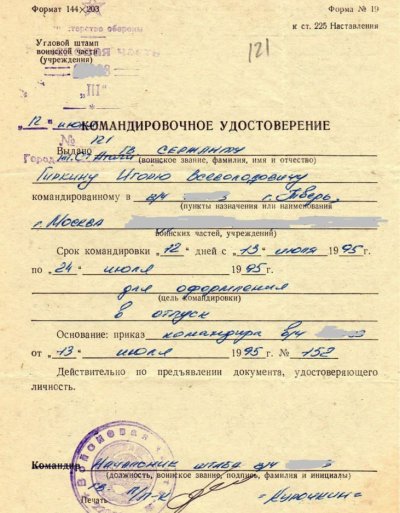 Формат 144×203
Форма № 19
к ст. 225 Наставления
Угловой штамп
воинской части
(учреждения)
121
"III"
"12" июля
КОМАНДИРОВОЧНОЕ УДОСТОВЕРЕНИЕ
№ 121
Выдано гв сержанту
Город
(воинское звание, фамилия, имя и отчество)
Гиркину Игорю Всеволодовичу
командированному в в/ч г. Тверь,
(пункты назначения или наименования
г. Москва
воинских частей, учреждений)
Срок командировки „12" дней с „13" июля 1995 г.
по „24" июля 1995 г.
для оформления
(цель командировки)
в отпуск
Основание: приказ командира в/ч
от „13" июля 1995 г. № 152
Действительно по предъявлении документа, удостоверяющего
личность.
Командир Начальник штаба в/ч
(должность, воинское звание, подпись, фамилия и инициалы)
гв. п/п-к
Печать